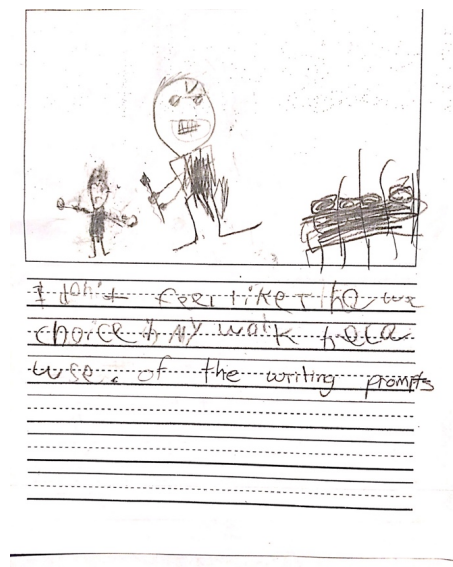 I don't feel like I have
choice in my work beca
use. of the writing prompts